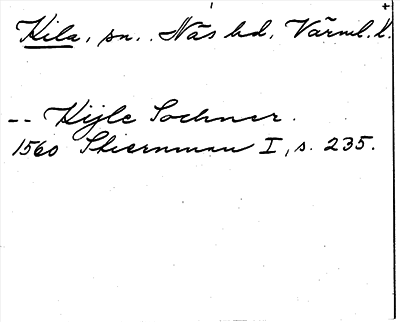 Kila, sn., Näs hd, Värml. l.
-- Kijle Sochner.
1560 Stiernman I, s. 235.